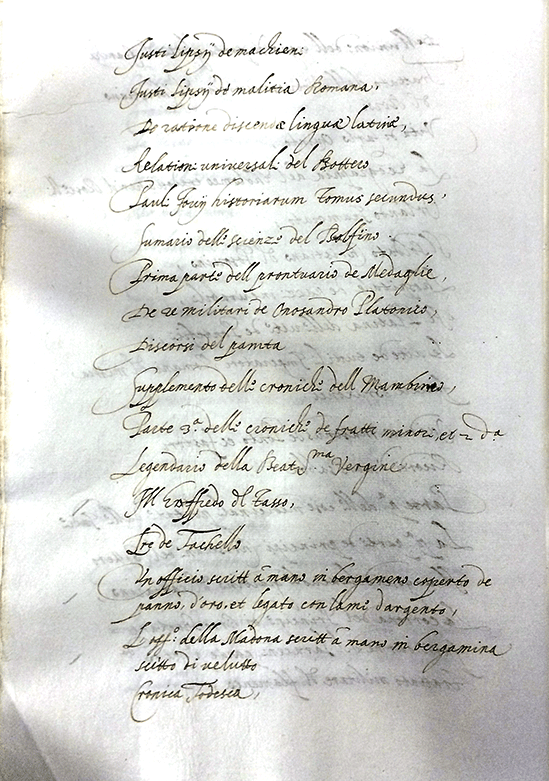 Justi Lipsÿ de machien:
Justi Lipsÿ de malitia Romana,
De ratione discendæ linguæ latinæ,
Relation: universal: del Bottero
Paul: Jovÿ historiarum tomus secundus,
Sumario dell: scienz: del Bolfino
Prima part: dell prontuario de Medaglie,
De re militari de Onosandro Platonico,
Discorsi del paruta
Supplemento dell: cronich: dell Mambrino,
Parte 3.a dell: cronich: de fratti minori, et 2 da
Legendario della Beat.ma Vergine
Ill Goffredo dl Tasso,
Lre de Tachello
Un officio scritt à mano in bergameno coperto de
panno, d'oro, et legato con lame d'argento,
L'off: della Madona scritt à mano in bergamina
di velutto
Cronica Todesca,